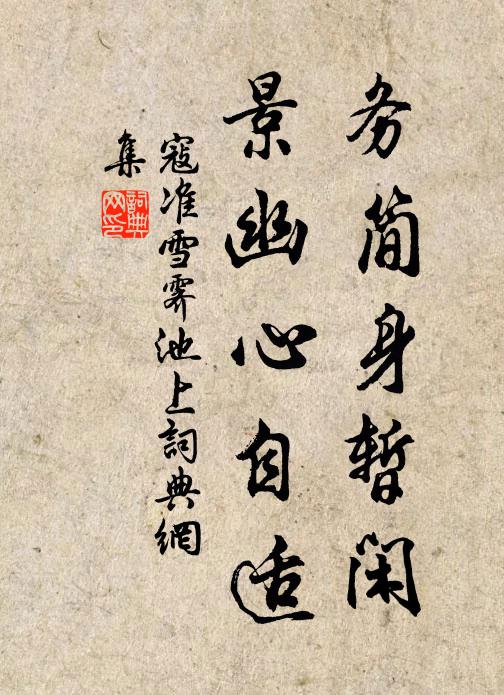 务简身暂闲
景幽心自适
寇准雪霁池上詞典網
集
詞典网印